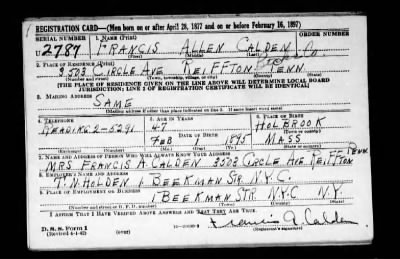 REGISTRATION CARD—(Men born on or after April 28, 1877 and on or before February 16, 1897)
SERIAL NUMBER 1. NAME (Print) ORDER NUMBER
U 2787 FRANCIS ALLEN CALDEN
2. PLACE OF RESIDENCE (Print)
3503 CIRCLE AVE REIFFTON PENN.
(Number and street) (Town, township, village, or city) (County) (State)
[THE PLACE OF RESIDENCE GIVEN ON THE LINE ABOVE WILL DETERMINE LOCAL BOARD
JURISDICTION; LINE 2 OF REGISTRATION CERTIFICATE WILL BE IDENTICAL]
3. MAILING ADDRESS
SAME
[Mailing address if other than place indicated on line 2. If same insert word same]
4. TELEPHONE 5. AGE IN YEARS 6. PLACE OF BIRTH
READING 2-5291 47 HOLBROOK
DATE OF BIRTH (Town or county)
FEB 1895 MASS
(Exchange) (Number) (Mo.) (Day) (Yr.) (State or country)
7. NAME AND ADDRESS OF PERSON WHO WILL ALWAYS KNOW YOUR ADDRESS PENN.
MRS FRANCIS A. CALDEN 3503 CIRCLE AVE REIFFTON
8. EMPLOYER'S NAME AND ADDRESS
T. N. HOLDEN 1 BEEKMAN STR. N.Y.C.
9. PLACE OF EMPLOYMENT OR BUSINESS
1 BEEKMAN STR. N.Y.C N.Y.
(Number and street or R. F. D. number) (Town) (County) (State)
I AFFIRM THAT I HAVE VERIFIED ABOVE ANSWERS AND THAT THEY ARE TRUE.
D. S. S. Form 1
(Revised 4-1-42) (over) Francis A. Calden
(Registrant's signature)